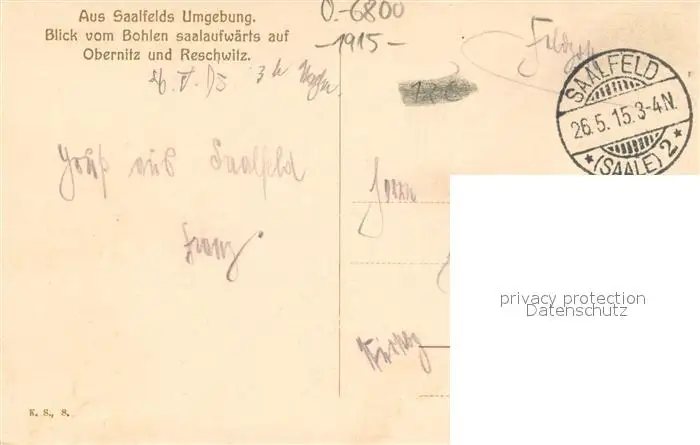 Aus Saalfelds Umgebung.
Blick vom Bohlen saalaufwärts auf
Obernitz und Reschwitz.
26. V. 15 3 h
Gruß aus Saalfeld
Franz.
K. S., S.
O.-6800
-1915-
SAALFELD
26.5.15.3-4N.
* (SAALE) 2 *
Herrn
privacy protection
Datenschutz